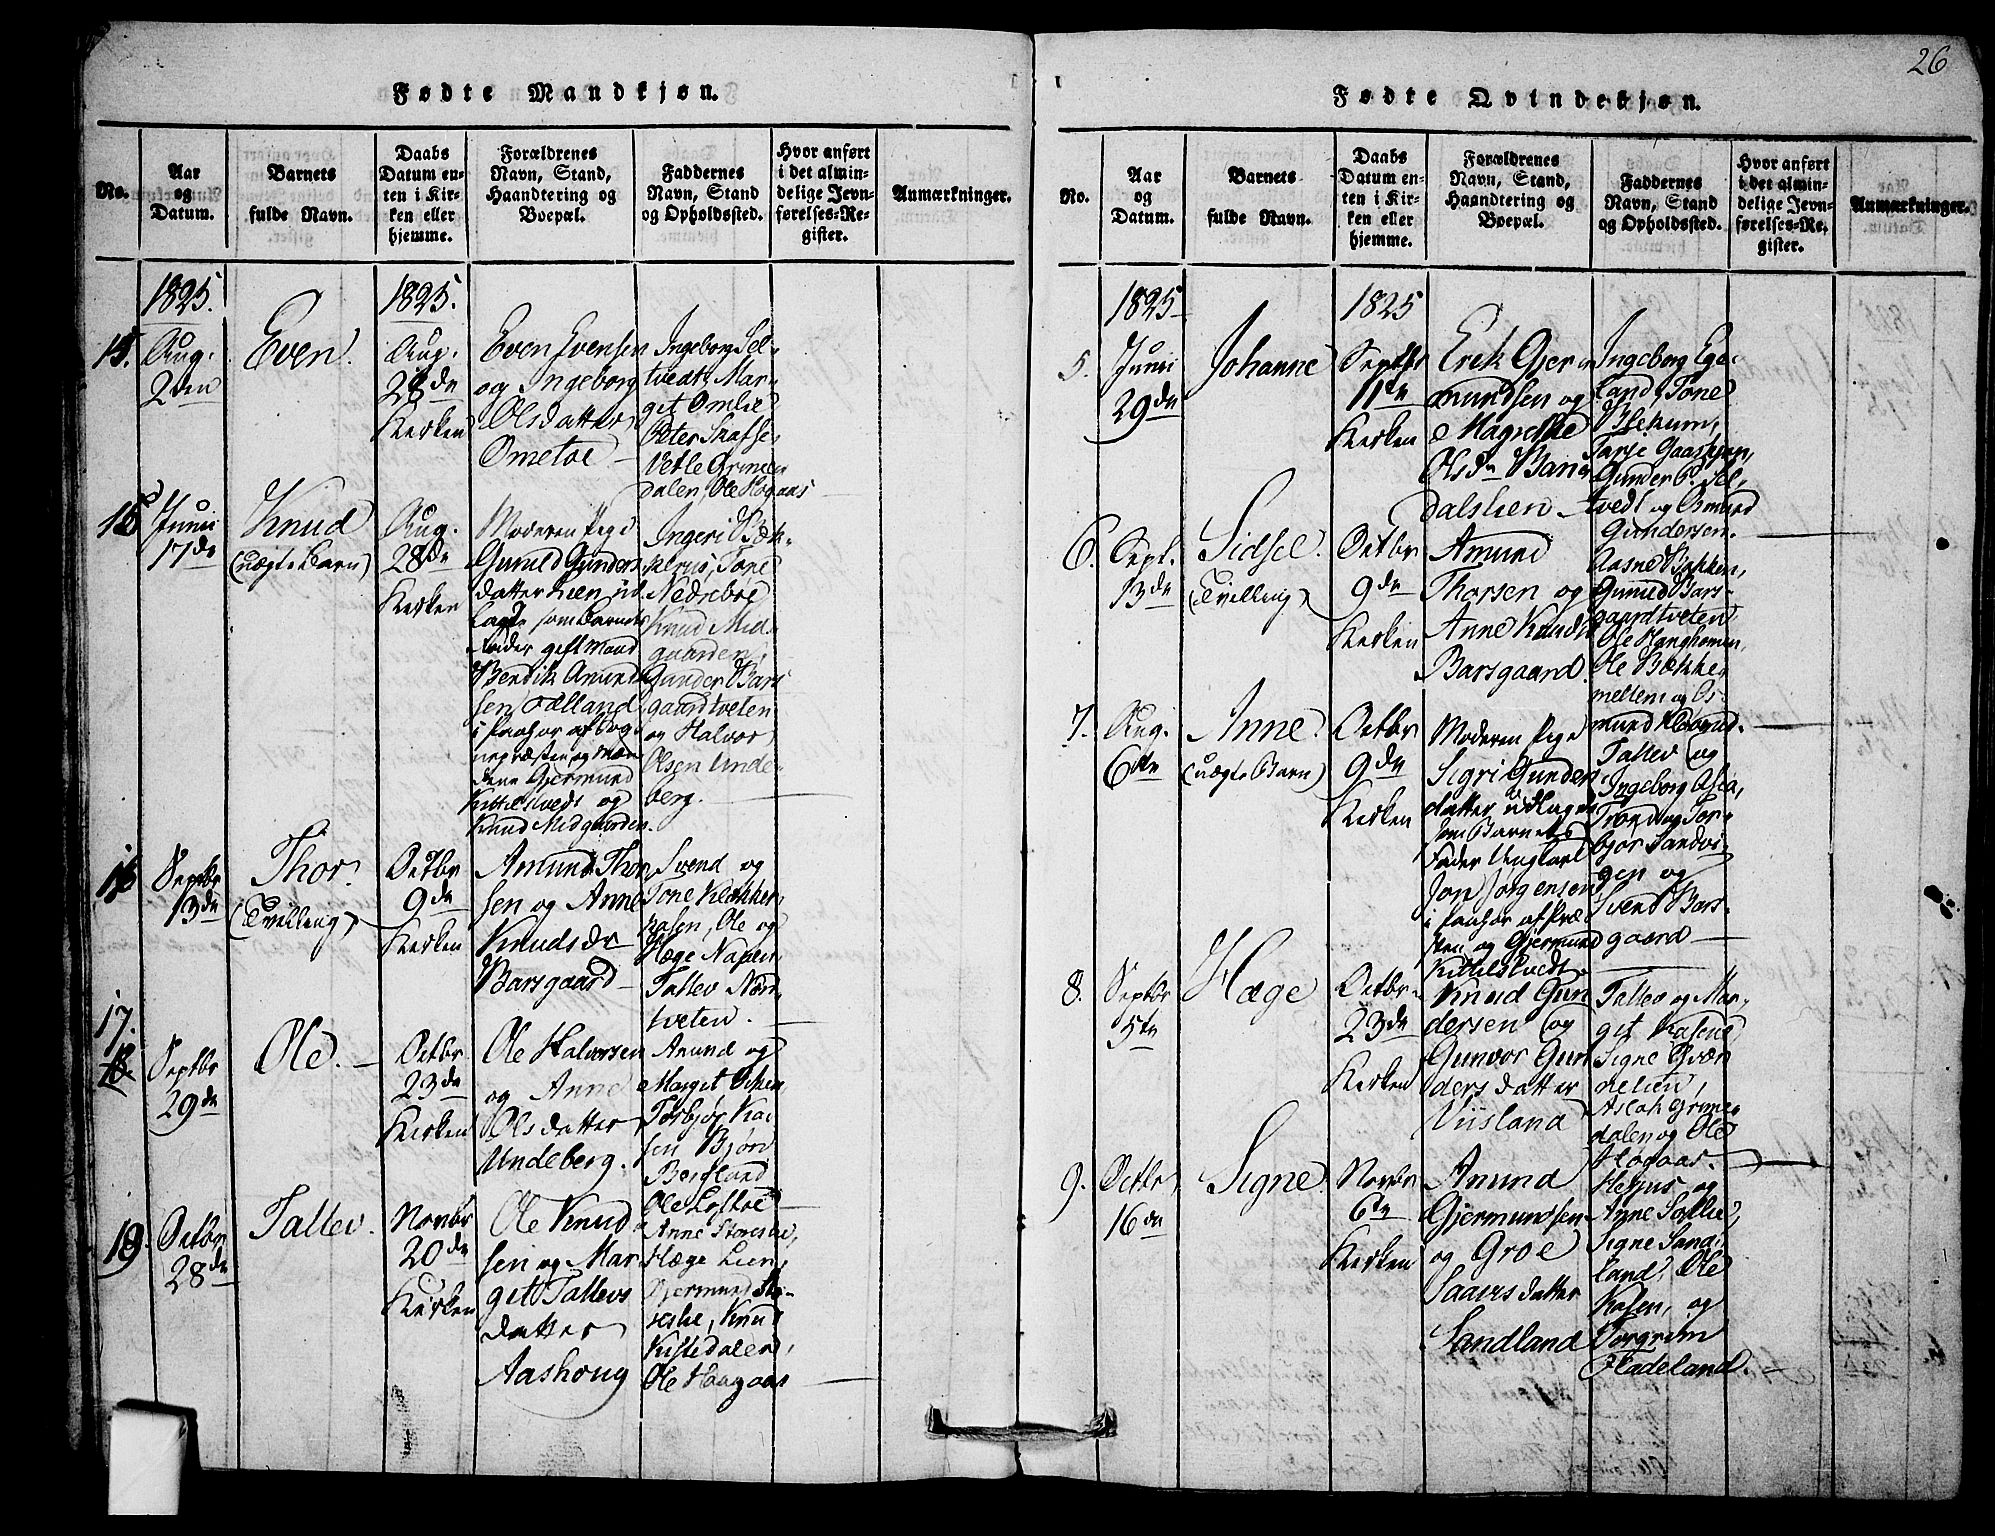 26
Fødte Mandkjøn.
No.
Aar
og
Datum.
Barnets
fulde Navn.
Daabs
Datum en-
ten i Kir-
ken eller
hjemme.
Forældrenes
Navn, Stand,
Haandtering og
Boepæl.
Faddernes
Navn, Stand
og Opholdssted.
Hvor anført
i det almin-
delige Jevn-
førelses-Re-
gister.
Anmærkninger.
1825.
1825.
Aug.
2den
Even.
Aug.
28de
Kirken
Even Evensen
og Ingeborg
Olsdatter
Omtvet
Ingeborg Sel-
tvedt, Mar-
git Omlie
Peter
Vetle Grime
dalen, Ole Hogaas
Junii
17de
Knud
(uægte Barn)
Aug.
28de
Kirken
Moderen Pige
Gunild Gunders
datter Lien ud
lagte som Barnets
Fader gift Mand
Bendik Amund
sen Fælland
Gjermund
Kittilstvedt og
Knud Midgaarden.
Ingeri
Tone
Nedrebøe
Knud Mid-
gaarden,
Gunder Bars
gaardtveten
og Halvor
Olsen Unde-
berg.
16
Septbr
13de
Thor.
(Tvilling)
Octbr
9de
Kirken
Amund Thor
sen og Anne
Knudsdr
Barsgaard
Svend og
Tone
Ole og
Hæge
Tallev
tveten.
17.
Septbr
29de
Ole.
Octbr
23de
Kirken
Ole Halvorsen
og Anne
Olsdatter
Undeberg.
Amund og
Margit
Torbjør Ka-
sen Bjørn
Bergland
Octbr
28de
Tallev.
Novbr
20de
Kirken
Ole Knud
sen og Mar
git Tallevs
datter
Aashoug
Ole Loftoe
Anne
Hæge Lien,
Gjermund
Knud
Kistedalen,
Ole Haugaas
Fødte Qvindekjøn.
No.
Aar
og
Datum.
Barnets
fulde Navn.
Daabs
Datum en-
ten i Kir-
ken eller
hjemme.
Forældrenes
Navn, Stand,
Haandtering og
Boepæl.
Faddernes
Navn, Stand
og Opholdssted.
Hvor anført
i det almin-
delige Jevn-
førelses-Re-
gister.
Anmærkninger.
1825
1825
5.
Junii
29de
Johanne
Septbr
11te
Kirken
Erik Gjer
mundsen og
Magrethe
Olsdr
dalslien
Ingeborg Ege-
land, Tone
Tarje
Gunder P. Sel,
tvedt og Osmund
Gundersen.
6.
Sept.
13de
Sidsel.
(Tvilling)
Octbr
9de
Kirken
Amund
Thorsen og
Anne Knudsd
Barsgaard.
Aasne Bækken,
Gunild Bars-
gaardtveten
Ole
Ole Bække
mellem og Os-
mund
7.
Aug.
6te
Anne.
(uægte Barn)
Octbr
9de
Kirken
Moderen Pige
Sigri Gunders
datter udlagde
som Barnets
Fader Ungkarl
Jon Jørgensen
og Gjermund
Kittelstvedt
Tallev og
Ingeborg
Trond og Tor-
bjør Sandvi-
gen og
Svend Bars-
gaard
8.
Septbr
5te
Hæge
Octbr
23de
Kirken
Knud Gun
dersen og
Gunvor Gun
dersdatter
Viisland
Tallev og Mar-
git Kasene,
Signe
Aslak Grime-
dalen og Ole
Hogaas.
9.
Octbr
16de
Signe.
Novbr
6te
Kirken
Amund
Gjermundsen
og Groe
Saavesdatter
Sandland
og
Anne
Signe Sand-
land, Ole
Kasen, og
Torgrim
Fladeland.